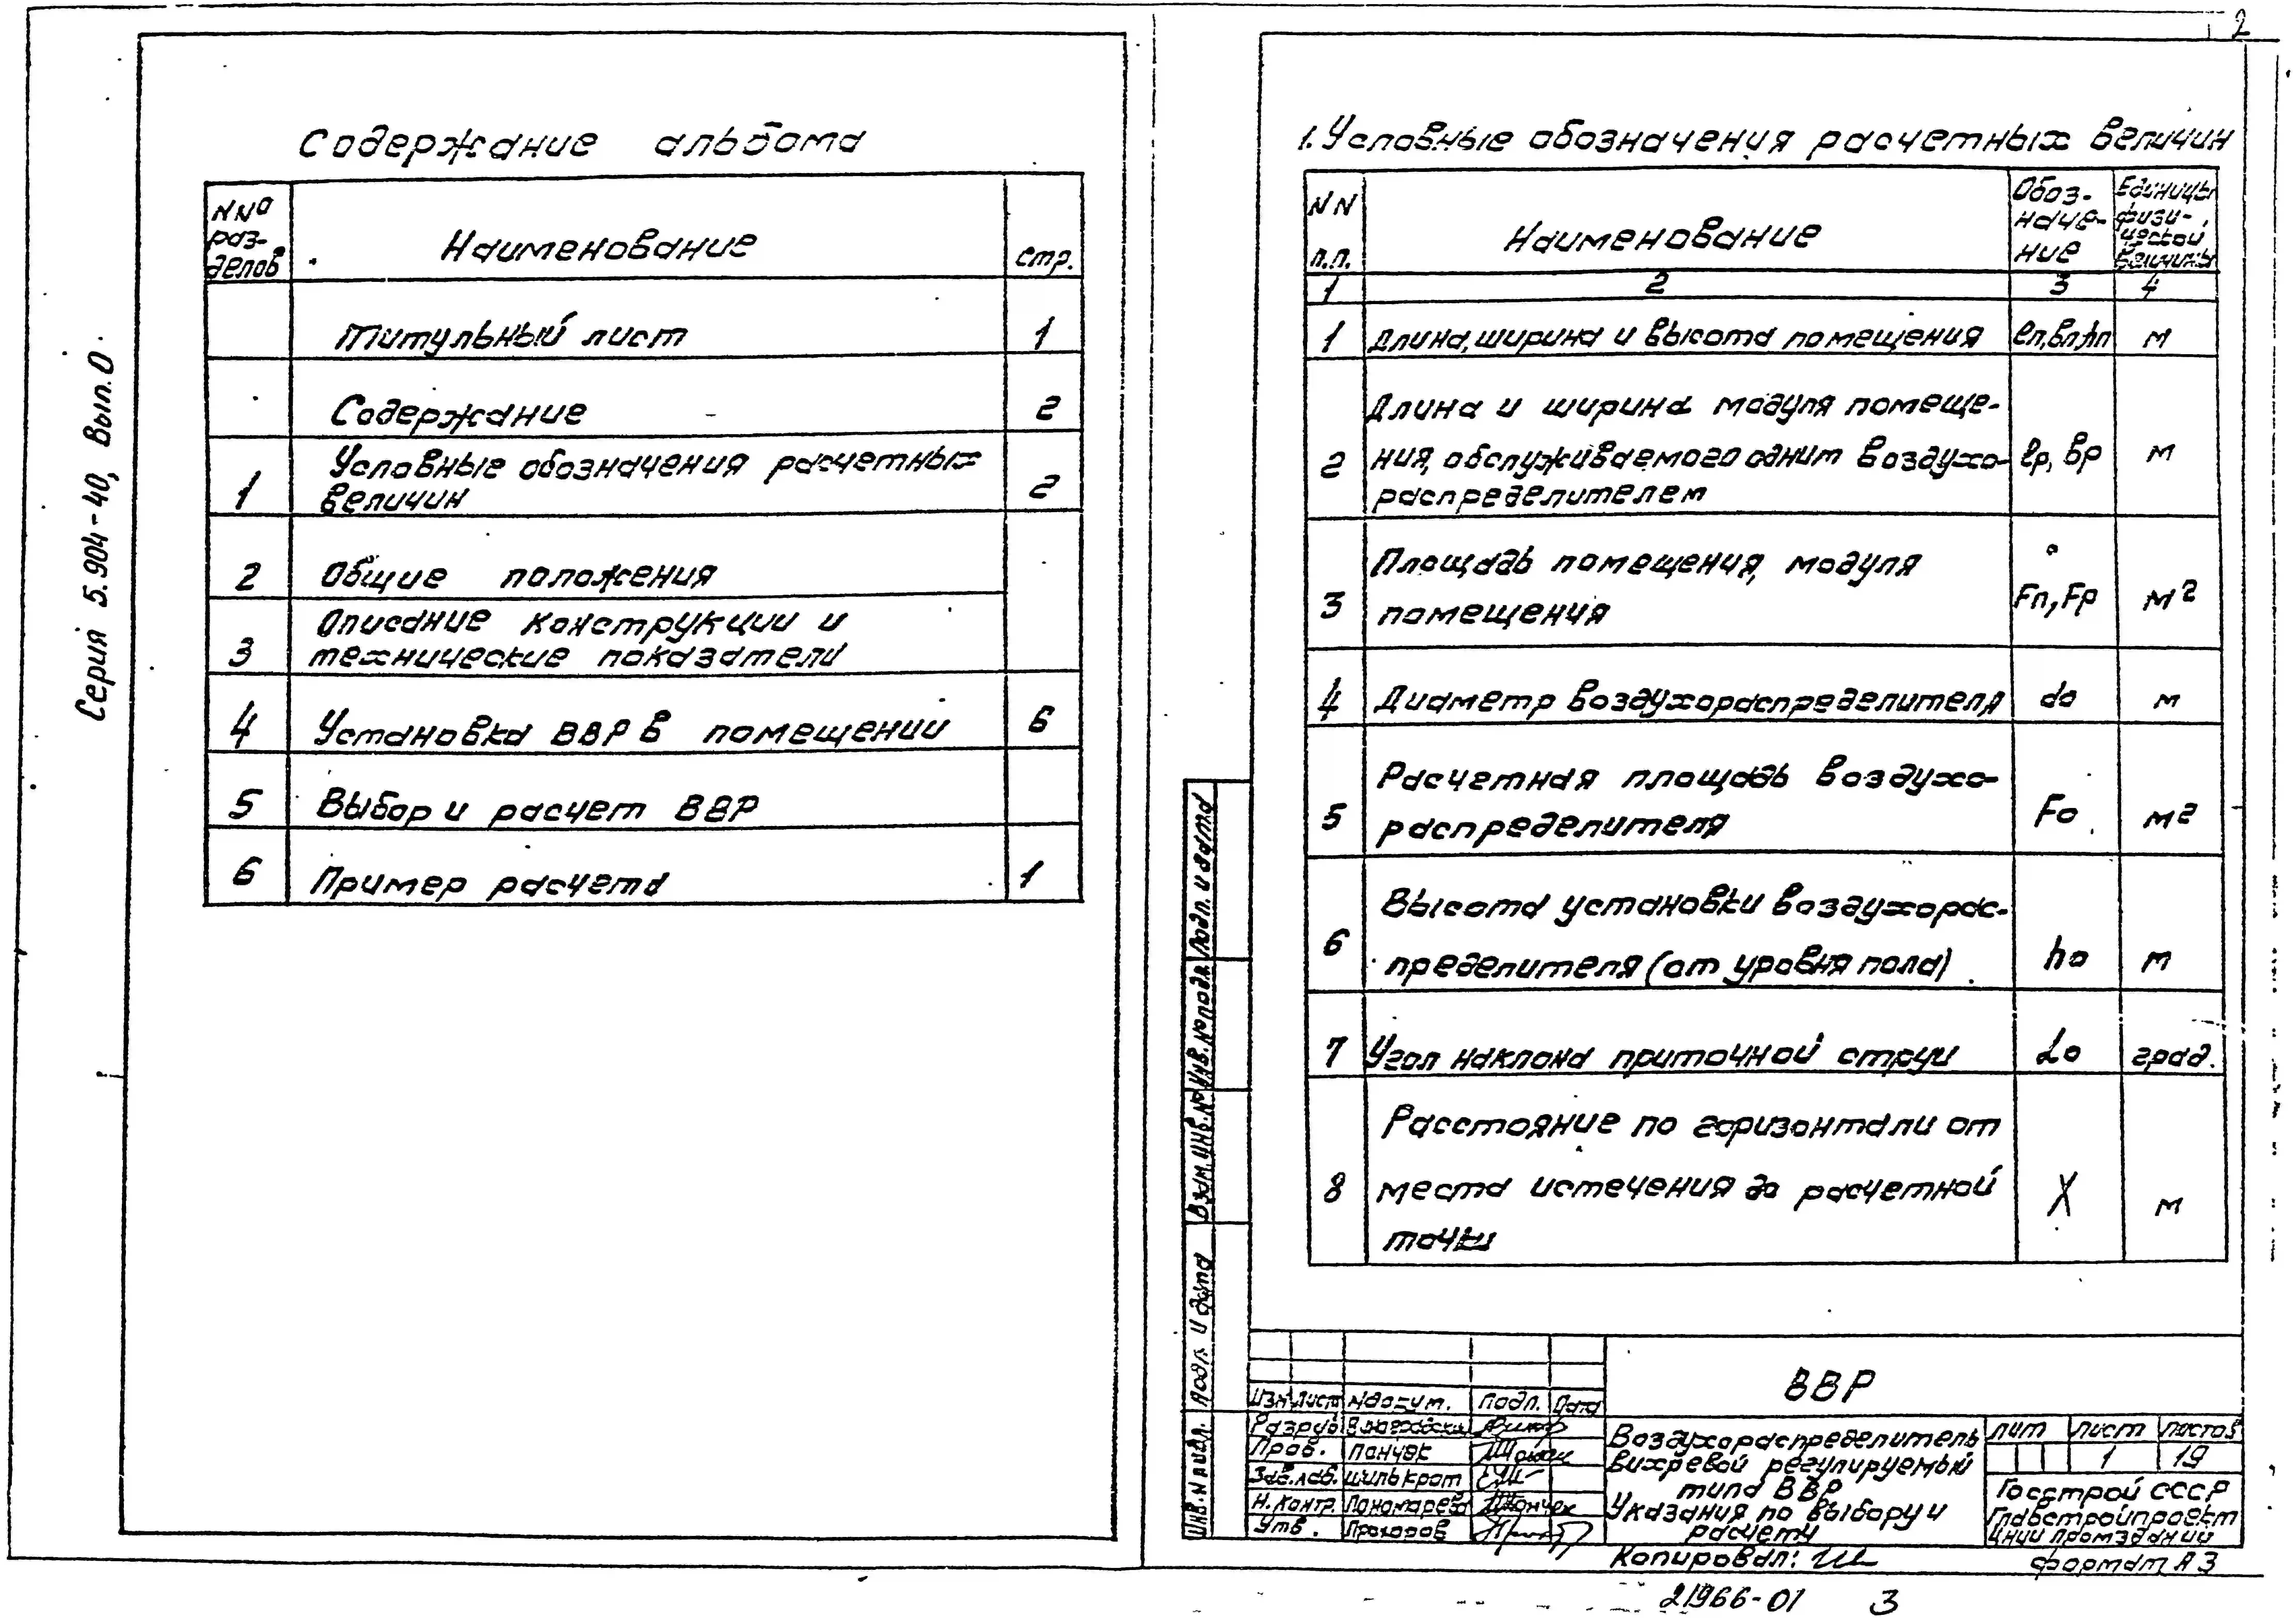 2
Серия 5.904-40, Вып.0
Содержание альбома
NNº раз- делов
Наименование
стр.
Титульный лист 1
Содержание 2
1 Условные обозначения расчетных
величин 2
2 Общие положения
3 Описание конструкции и
технические показатели
4 Установка ВВР в помещении 6
5 Выбор и расчет ВВР
6 Пример расчета 1
1. Условные обозначения расчетных величин
NN п.п.
Наименование
Обоз- наче- ние
Единицы физи- ческой величины
1 2 3 4
1 Длина, ширина и высота помещения ℓп, вп, hп м
Длина и ширина модуля помеще-
2 ния, обслуживаемого одним воздухо- ℓр, вр м
распределителем
Площадь помещения, модуля
3 помещения Fп, Fр м²
4 Диаметр воздухораспределителя do м
Расчетная площадь воздухо-
5 распределителя Fo м2
Высота установки воздухорас-
6 пределителя (от уровня пола) ho м
7 Угол наклона приточной струи αo град.
Расстояние по горизонтали от
8 места истечения до расчетной X м
точки
Инв. N подл.
Подп. и дата
Взам. инв. №
Инв. № подл.
Подп. и дата
Изм Лист № докум. Подп. Дата
Разраб
Пров. Панчек
Зав.лаб. Шилькрот
Н. контр. Пономарева
Утв. Прохоров
ВВР
Воздухораспределитель
вихревой регулируемый
типа ВВР
Указания по выбору и
расчету
Лит Лист Листов
1 19
Госстрой СССР
Главстройпроект
ЦНИИпромзданий
Копировал:
формат А3
21966-01 3